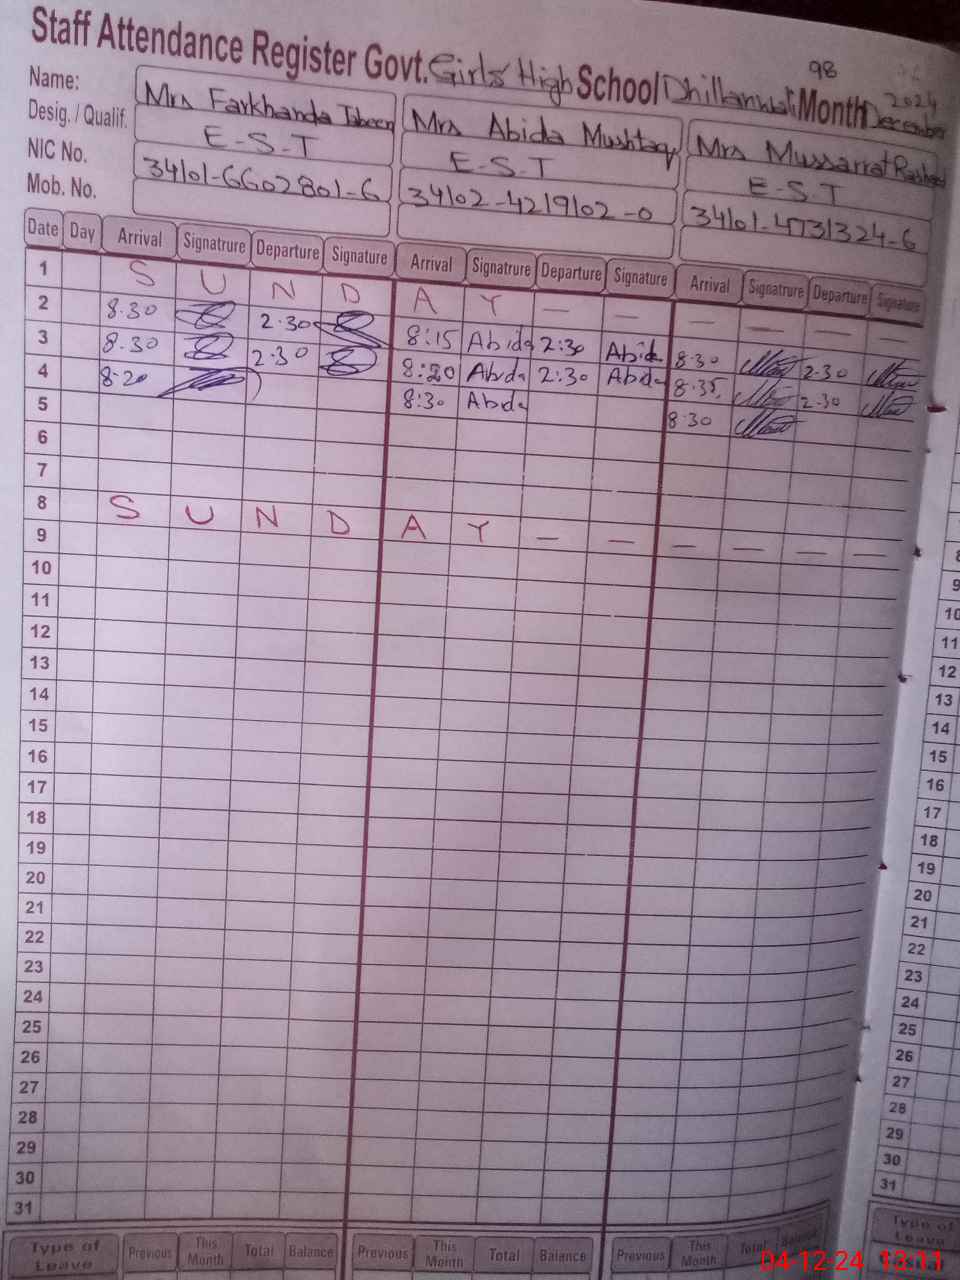 98
Staff Attendance Register Govt. Girls' High School Dhillanwali Month December 2024
Name: Mrs Farkhanda Jabeen Mrs Abida Mushtaq Mrs Mussarrat Rasheed
Desig. / Qualif. E-S-T E-S-T E-S-T
NIC No. 34101-6602801-6 34102-4219102-0 34101-4731324-6
Mob. No.
Date Day Arrival Signatrure Departure Signature Arrival Signatrure Departure Signature Arrival Signatrure Departure Signature
1 S U N D A Y — — — — — —
2 8.30 2.30 8:15 Abida 2:30 Abid 8.30 2.30
3 8.30 2.30 8:20 Abda 2:30 Abda 8.35 2.30
4 8.20 8:30 Abda 8.30
5
6
7
8 S U N D A Y — — — — — —
9
10
11
12
13
14
15
16
17
18
19
20
21
22
23
24
25
26
27
28
29
30
31
Type of Leave Previous This Month Total Balance Previous This Month Total Balance Previous This Month Total Balance
8
9
10
11
12
13
14
15
16
17
18
19
20
21
22
23
24
25
26
27
28
29
30
31
Type of Leave
04-12-24 13:11